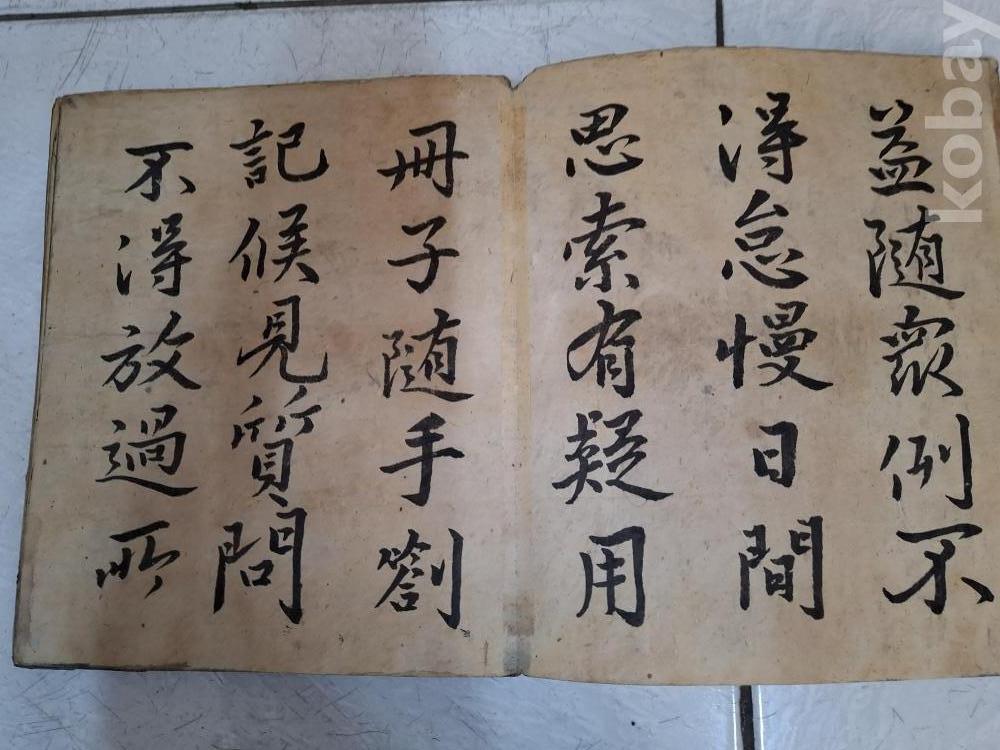 益随衆例不
得怠慢日間
思索有疑用
冊子随手劄
記候見質問
不得放過所
kobay